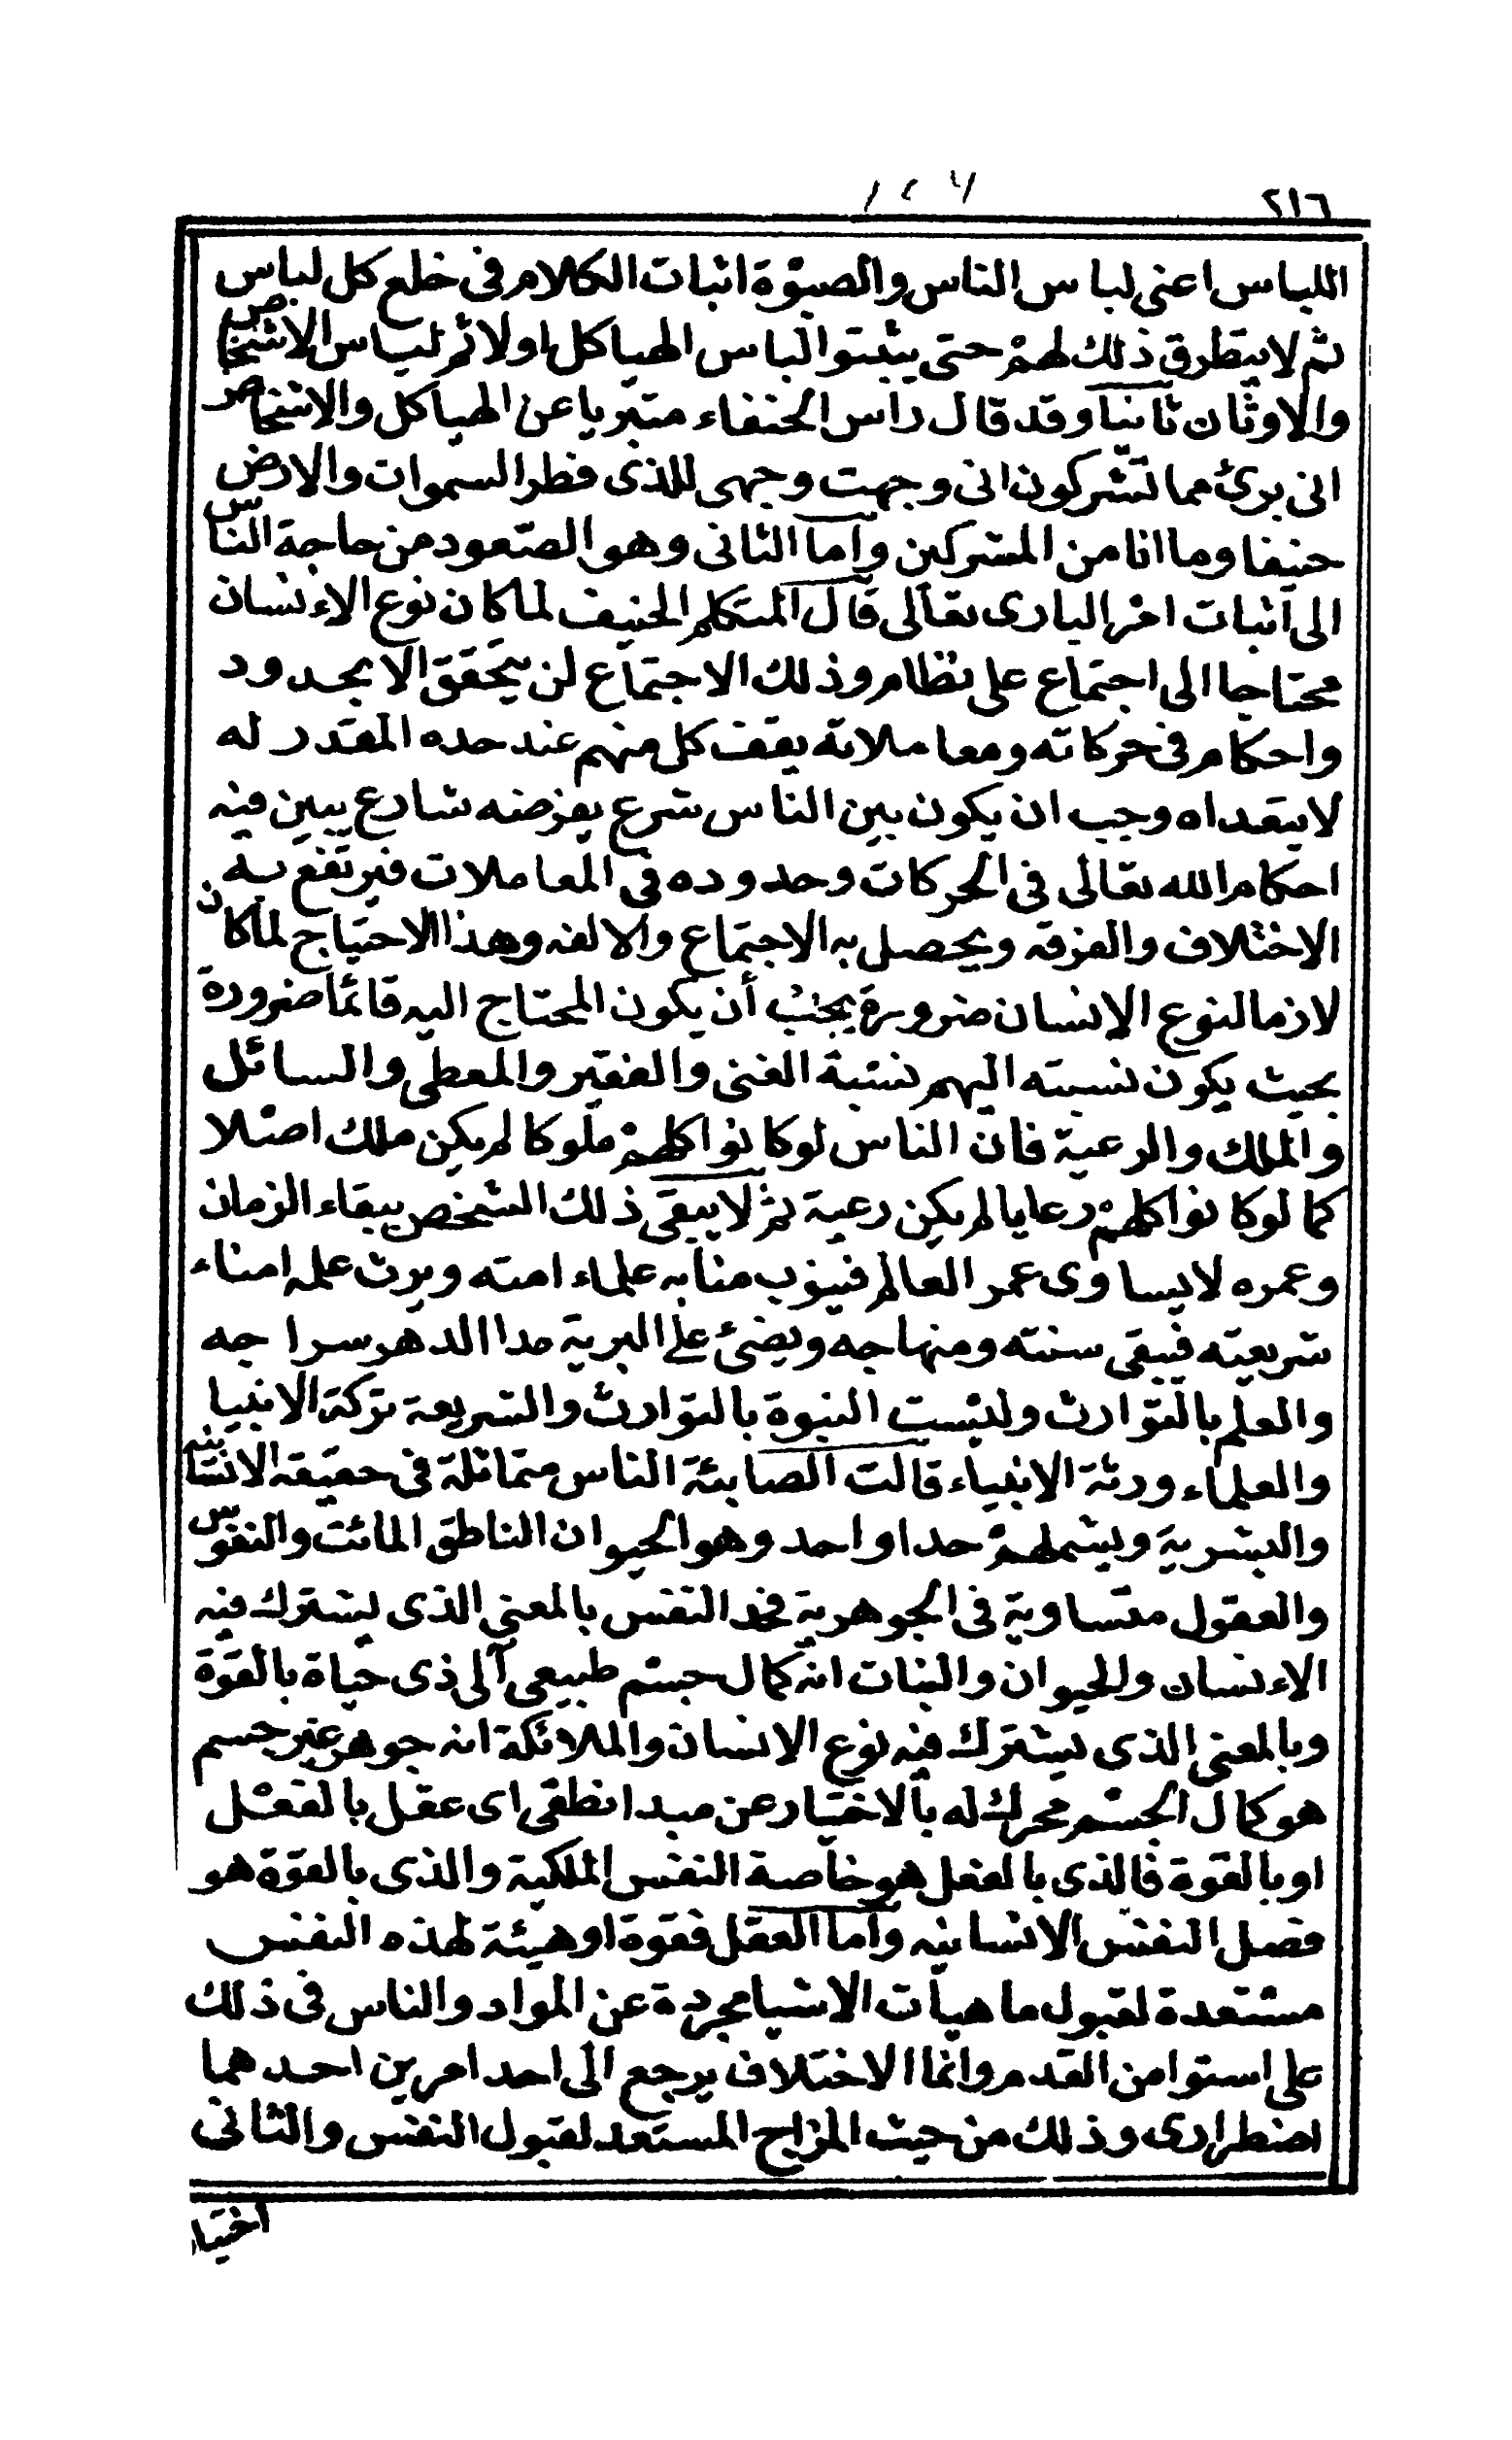 ٢١٦
اللباس اعنى لباس الناس والصبوة اثبات الكلام فى خلع كل لباس
ثم لا يتطرق ذلك لهم حتى يثبتوا لباس الهياكل اولا ثم لباس الاشخاص
والاوثان ثانيا وقد قال راس الحنفاء متبريا عن الهياكل والاشخاص
انى برئ مما تشركون انى وجهت وجهى للذى فطر السموات والارض
حنيفا وما انا من المشركين واما الثانى وهو الصعود من حاجة الناس
الى اثبات امر البارى تعالى قال المتكلم الحنيف لما كان نوع الإنسان
محتاجا الى اجتماع على نظام وذلك الاجتماع لن يتحقق الا بحدود
واحكام فى حركاته ومعاملاته يقف كل منهم عند حده المقدر له
لا يتعداه وجب ان يكون بين الناس شرع يفرضه شارع يبين فيه
احكام الله تعالى فى الحركات وحدوده فى المعاملات فيرتفع به
الاختلاف والفرقه ويحصل به الاجتماع والالفه وهذا الاحتياج لما كان
لازما لنوع الانسان ضرورة يجب أن يكون المحتاج اليه قائما ضرورة
بحيث يكون نسبته اليهم نسبة الغنى والفقير والمعطى والسائل
والملك والرعية فان الناس لوكانوا كلهم ملوكا لم يكن ملك اصلا
كما لوكانوا كلهم رعايا لم يكن رعية ثم لا يبقى ذلك الشخص ببقاء الزمان
وعمره لا يساوى عمر العالم فينوب منابه علماء امته ويرث علمه امناء
شريعته فيبقى سنته ومنهاجه ويضئ على البرية مدا الدهر سراجه
والعلم بالتوارث وليست النبوة بالتوارث والشريعة تركة الانبيا
والعلماء ورثة الانبياء قالت الصابئة الناس متماثلة فى حقيقه الانسانيه
والبشرية ويشملهم حدا واحد وهو الحيوان الناطق المائت والنفوس
والعقول متساوية فى الجوهرية فحد النفس بالمعنى الذى يشترك فيه
الإنسان والحيوان والنبات انه كمال جسم طبيعى آلى ذى حياة بالقوة
وبالمعنى الذى يشترك فيه نوع الانسان والملائكة انه جوهر غير جسم
هو كمال الجسم محرك له بالاختيار عن مبدا نطقى اى عقل بالفعل
او بالقوة فالذى بالفعل هو خاصة النفس الملكية والذى بالقوة هو
فصل النفس الانسانيه واما العقل فقوة او هيئة لهذه النفس
مستعدة لقبول ماهيات الاشيا مجردة عن المواد والناس فى ذلك
على استوا من القدم وانما الاختلاف يرجع الى احد امرين احدهما
اضطرارى وذلك من حيث المزاج المستعد لقبول النفس والثانى
اختيا